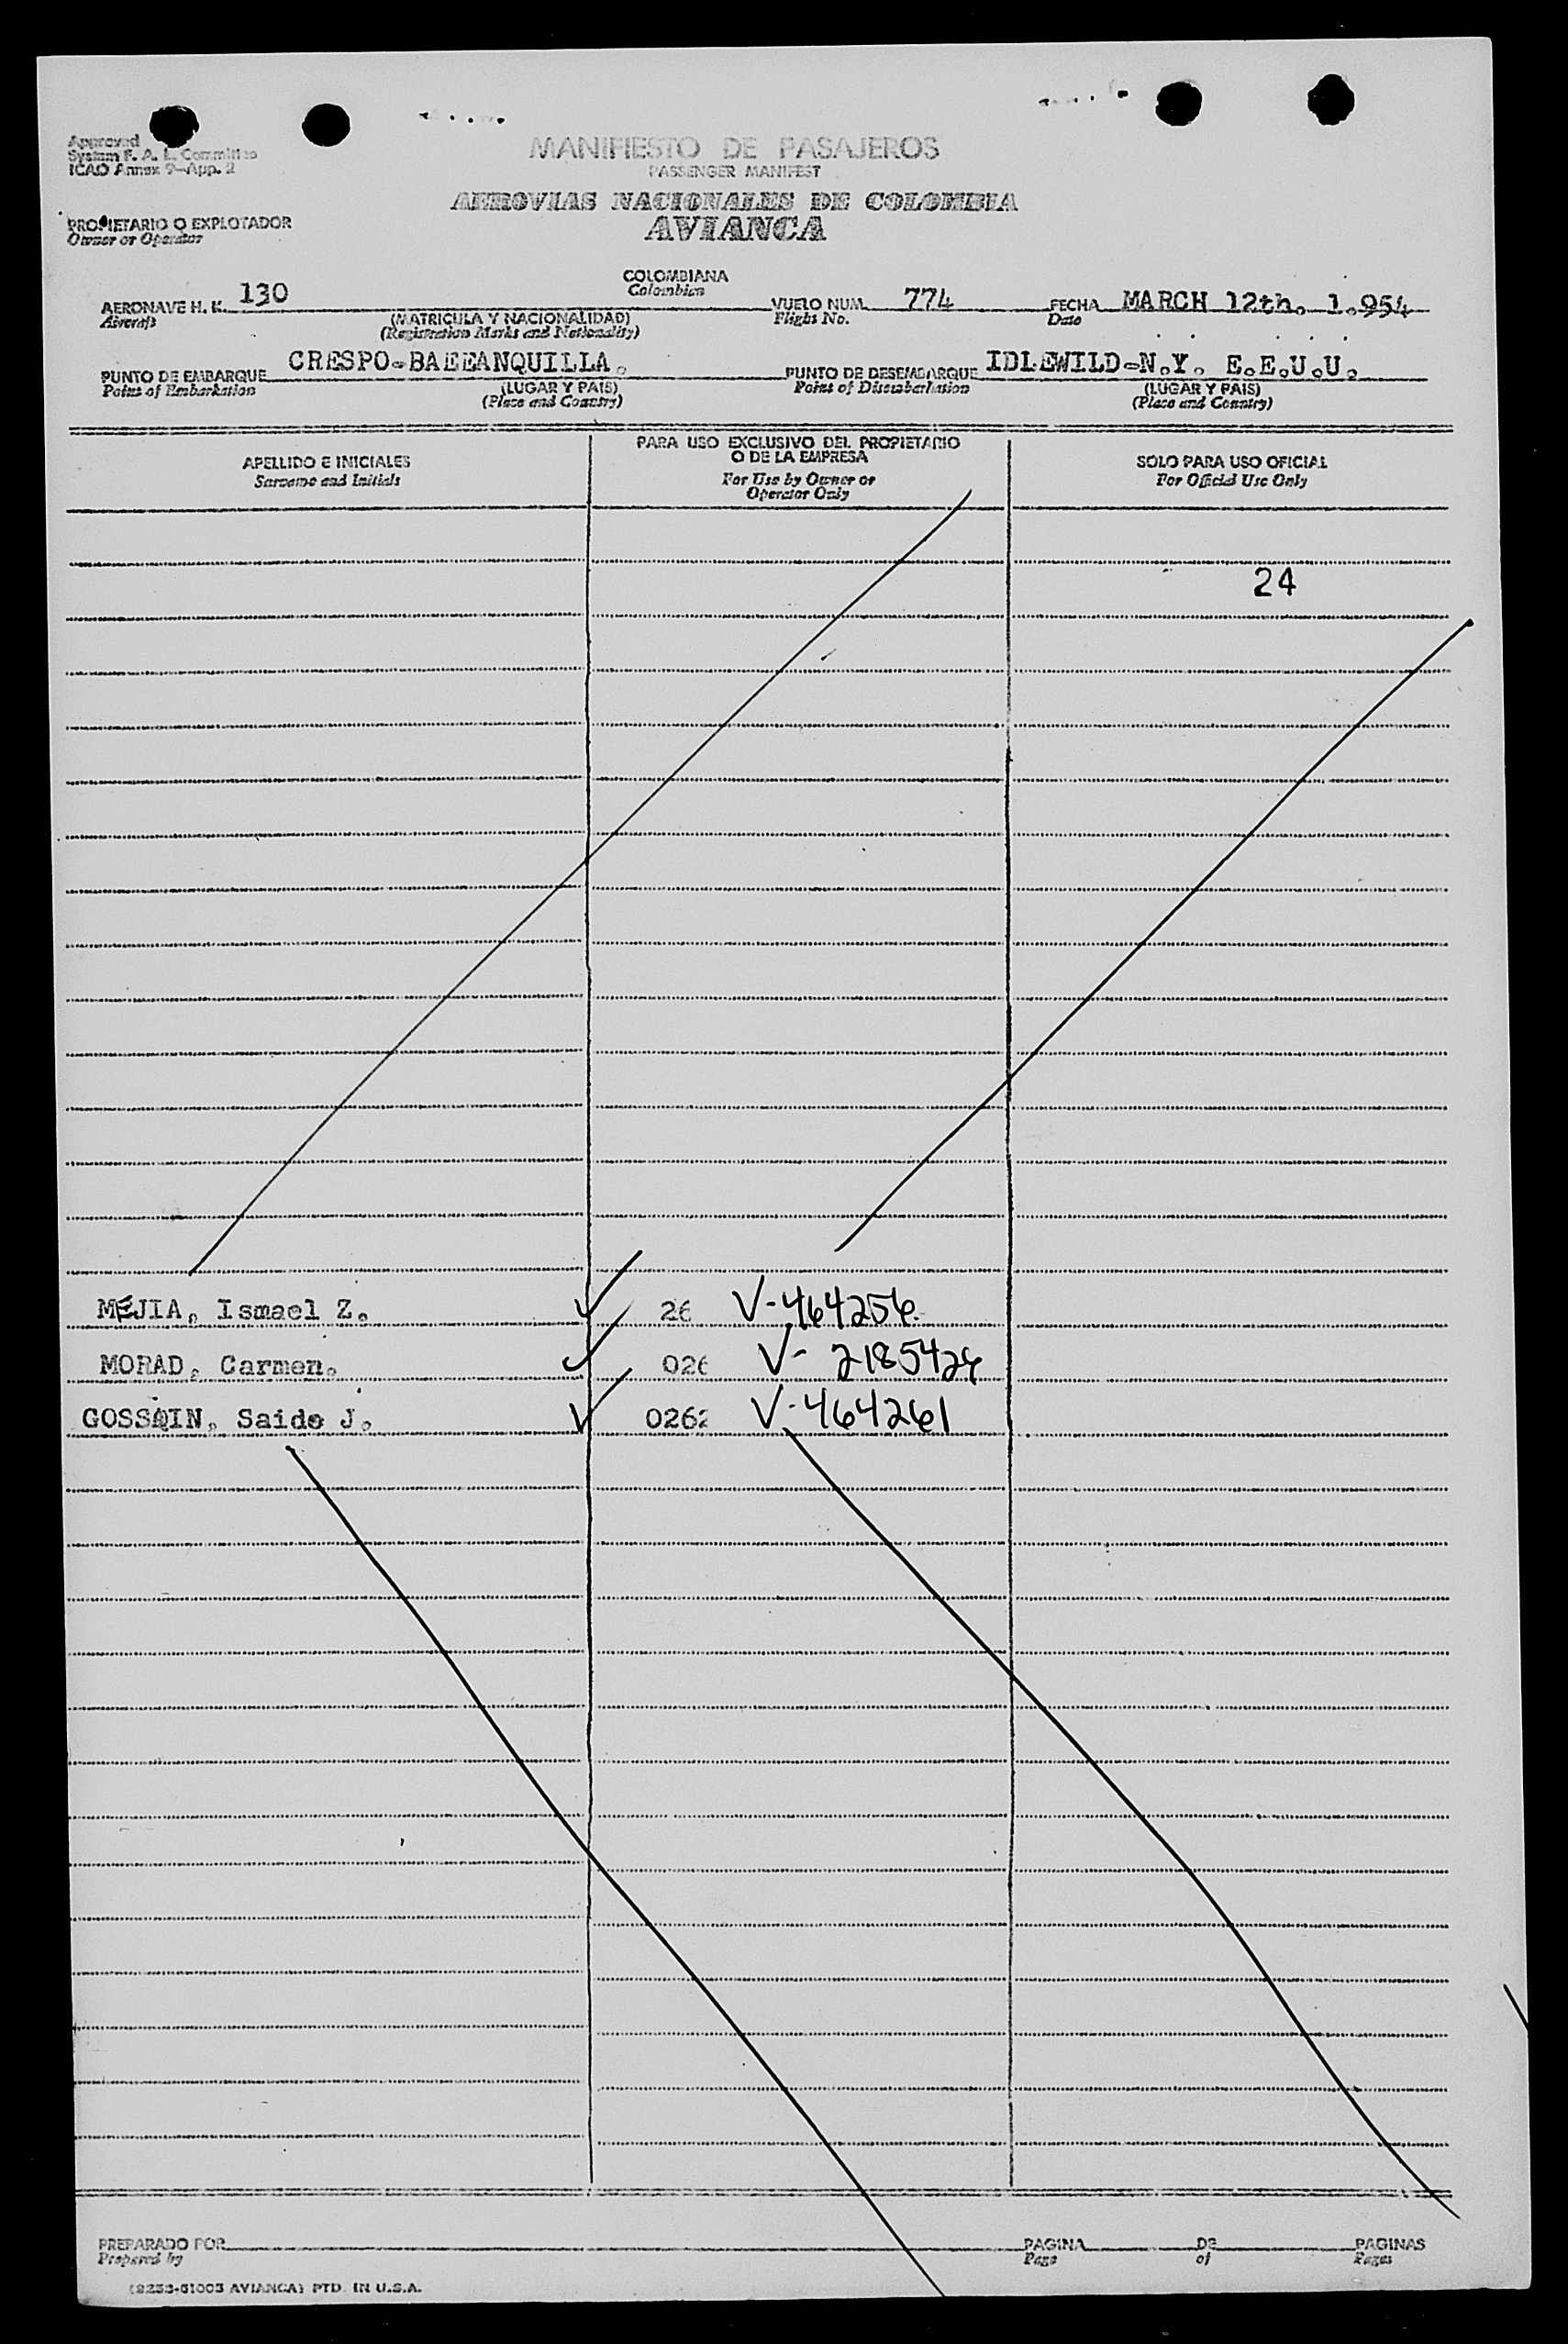 Approved
System F. A. L. Committee
ICAO Annex 9—App. 2
MANIFIESTO DE PASAJEROS
PASSENGER MANIFEST
AEROVIAS NACIONALES DE COLOMBIA
AVIANCA
PROPIETARIO O EXPLOTADOR
Owner or Operator
COLOMBIANA
Colombian
AERONAVE H. K. 130 VUELO NUM. 774 FECHA MARCH 12th. 1.954
Aircraft (MATRICULA Y NACIONALIDAD) Flight No. Date
(Registration Marks and Nationality)
PUNTO DE EMBARQUE CRESPO-BAEEANQUILLA. PUNTO DE DESEMBARQUE IDLEWILD-N.Y. E.E.U.U.
Point of Embarkation (LUGAR Y PAIS) Point of Disembarkation (LUGAR Y PAIS)
(Place and Country) (Place and Country)
APELLIDO E INICIALES PARA USO EXCLUSIVO DEL PROPIETARIO O DE LA EMPRESA SOLO PARA USO OFICIAL
Surname and Initials For Use by Owner or Operator Only For Official Use Only
24
MEJIA, Ismael Z. 26 V-464256
MORAD, Carmen. 026 V-2185426
GOSSAIN, Saide J. 0262 V-464261
PREPARADO POR PAGINA DE PAGINAS
Prepared by Page of Pages
(8253-61003 AVIANCA) PTD. IN U.S.A.